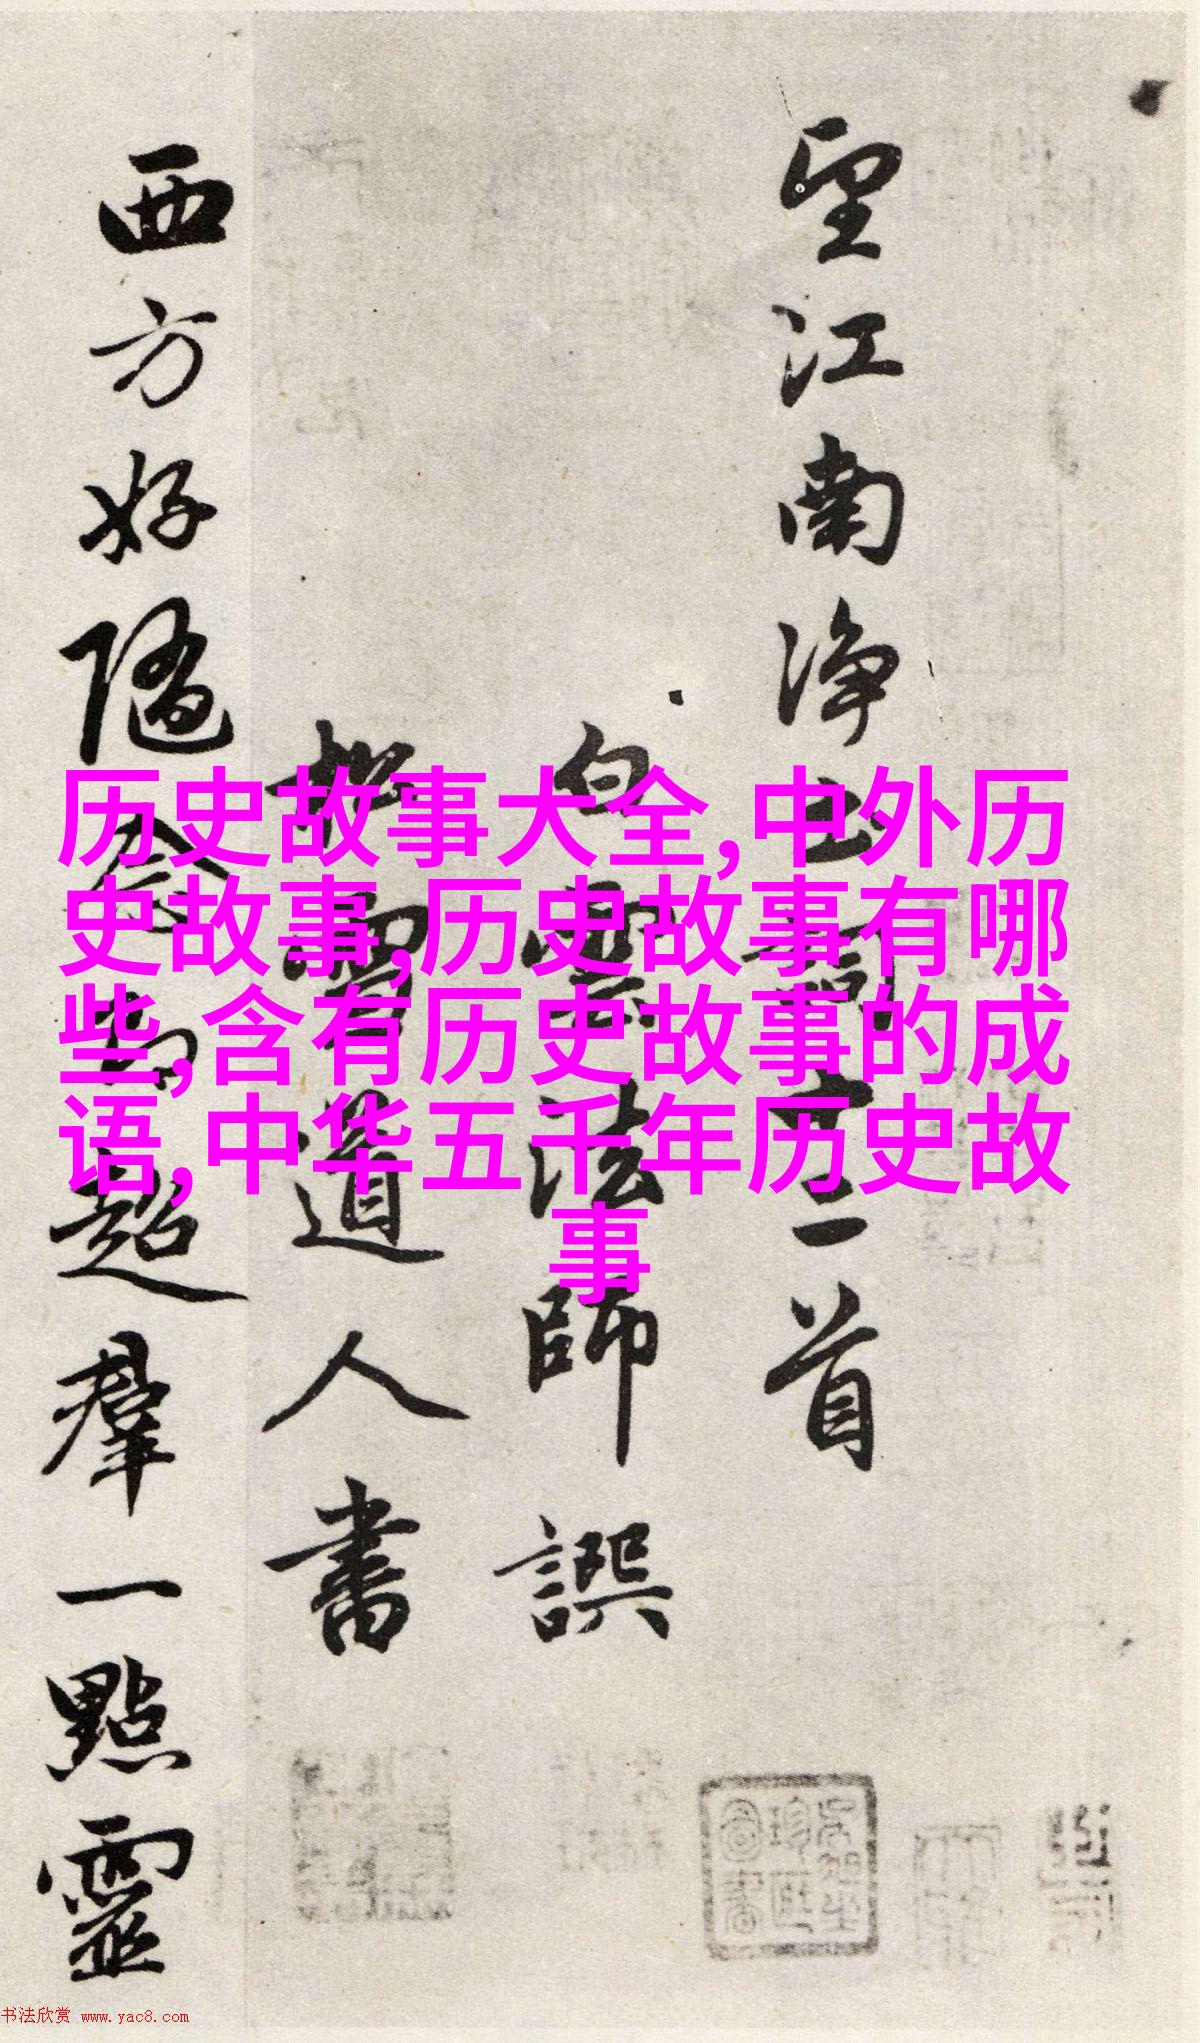 望江南淨土詞十二首
白雲法師譔
松雪道人書
西方好隨念即超羣一點靈
历史故事大全,中外历
史故事,历史故事有哪
些,含有历史故事的成
语,中华五千年历史故
事
书法欣赏 www.yac8.com